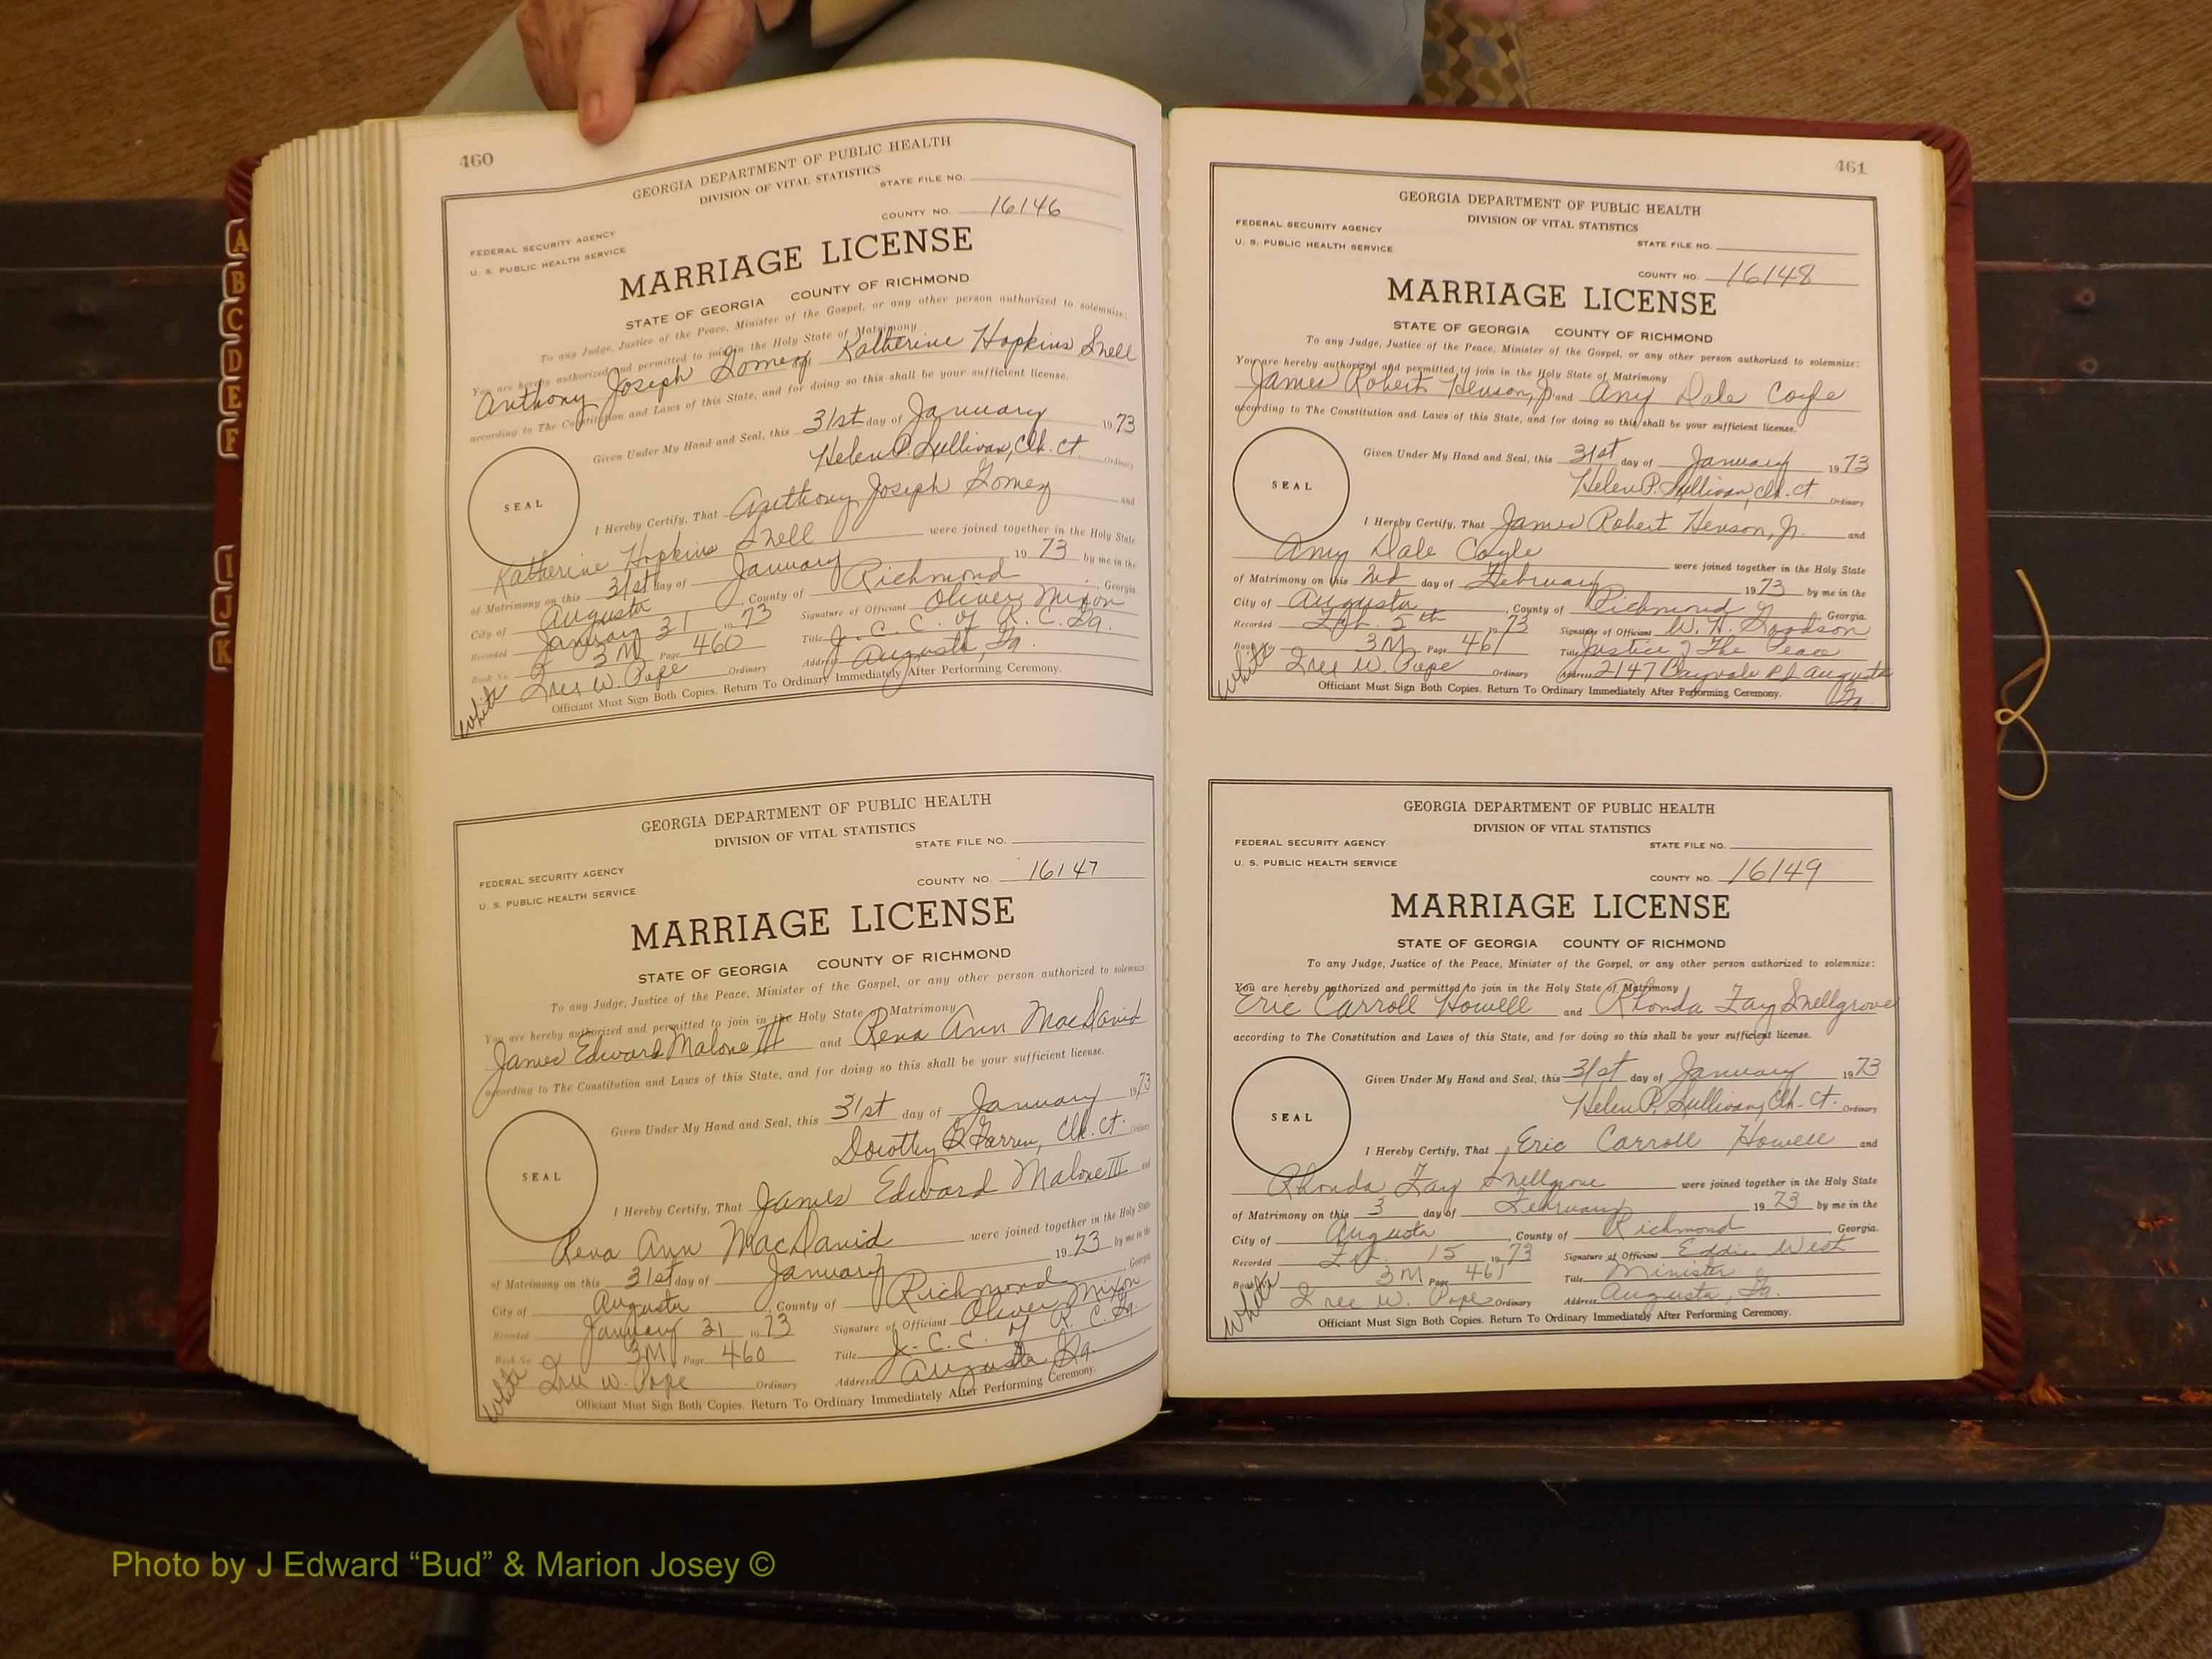 A
B
C
D
E
F
I
J
K
460
GEORGIA DEPARTMENT OF PUBLIC HEALTH
DIVISION OF VITAL STATISTICS
STATE FILE NO.
COUNTY NO. 16146
FEDERAL SECURITY AGENCY
U. S. PUBLIC HEALTH SERVICE
MARRIAGE LICENSE
STATE OF GEORGIA COUNTY OF RICHMOND
To any Judge, Justice of the Peace, Minister of the Gospel, or any other person authorized to solemnize:
You are hereby authorized and permitted to join in the Holy State of Matrimony
Anthony Joseph Gomez and Katherine Hopkins Snell
according to The Constitution and Laws of this State, and for doing so this shall be your sufficient license.
Given Under My Hand and Seal, this 31st day of January 1973
Helen P. Sullivan, Clk. Ct. Ordinary
SEAL
I Hereby Certify, That Anthony Joseph Gomez and
Katherine Hopkins Snell were joined together in the Holy State
of Matrimony on this 31st day of January 1973 by me in the
City of Augusta, County of Richmond, Georgia
Recorded January 31 1973 Signature of Officiant Oliver Mixon
Book No. 3M Page 460 Title J. C. C. of R. C. Ga.
W. Pope Ordinary Address Augusta, Ga.
White
Officiant Must Sign Both Copies. Return To Ordinary Immediately After Performing Ceremony.
GEORGIA DEPARTMENT OF PUBLIC HEALTH
DIVISION OF VITAL STATISTICS
STATE FILE NO.
COUNTY NO. 16147
FEDERAL SECURITY AGENCY
U. S. PUBLIC HEALTH SERVICE
MARRIAGE LICENSE
STATE OF GEORGIA COUNTY OF RICHMOND
To any Judge, Justice of the Peace, Minister of the Gospel, or any other person authorized to solemnize:
You are hereby authorized and permitted to join in the Holy State of Matrimony
James Edward Malone III and Rena Ann MacDavid
according to The Constitution and Laws of this State, and for doing so this shall be your sufficient license.
Given Under My Hand and Seal, this 31st day of January 1973
Dorothy Clk. Ct. Ordinary
SEAL
I Hereby Certify, That James Edward Malone III and
Rena Ann MacDavid were joined together in the Holy State
of Matrimony on this 31st day of January 1973 by me in the
City of Augusta, County of Richmond Georgia
Recorded January 31 1973 Signature of Officiant Oliver Mixon
Book No. 3M Page 460 Title J. C. C. of R. C. Ga.
W. Pope Ordinary Address Augusta Ga.
White
Officiant Must Sign Both Copies. Return To Ordinary Immediately After Performing Ceremony.
461
GEORGIA DEPARTMENT OF PUBLIC HEALTH
DIVISION OF VITAL STATISTICS
FEDERAL SECURITY AGENCY
U. S. PUBLIC HEALTH SERVICE
STATE FILE NO.
COUNTY NO. 16148
MARRIAGE LICENSE
STATE OF GEORGIA COUNTY OF RICHMOND
To any Judge, Justice of the Peace, Minister of the Gospel, or any other person authorized to solemnize:
You are hereby authorized and permitted to join in the Holy State of Matrimony
James Robert Henson, Jr. and Amy Dale Coyle
according to The Constitution and Laws of this State, and for doing so this shall be your sufficient license.
Given Under My Hand and Seal, this 31st day of January 1973
Helen P. Sullivan, Clk. Ct. Ordinary
SEAL
I Hereby Certify, That James Robert Henson, Jr. and
Amy Dale Coyle were joined together in the Holy State
of Matrimony on this 2nd day of February 1973 by me in the
City of Augusta, County of Richmond Georgia.
Recorded Feb. 5th 1973 Signature of Officiant W. H. Goodson
Book No. 3M Page 461 Title Justice of The Peace
W. Pope Ordinary Address 2147 Bayvale Rd Augusta
Ga.
White
Officiant Must Sign Both Copies. Return To Ordinary Immediately After Performing Ceremony.
GEORGIA DEPARTMENT OF PUBLIC HEALTH
DIVISION OF VITAL STATISTICS
FEDERAL SECURITY AGENCY
U. S. PUBLIC HEALTH SERVICE
STATE FILE NO.
COUNTY NO. 16149
MARRIAGE LICENSE
STATE OF GEORGIA COUNTY OF RICHMOND
To any Judge, Justice of the Peace, Minister of the Gospel, or any other person authorized to solemnize:
You are hereby authorized and permitted to join in the Holy State of Matrimony
Eric Carroll Howell and Rhonda Fay Snellgrove
according to The Constitution and Laws of this State, and for doing so this shall be your sufficient license.
Given Under My Hand and Seal, this 31st day of January 1973
Helen P. Sullivan, Clk. Ct. Ordinary
SEAL
I Hereby Certify, That Eric Carroll Howell and
Rhonda Fay Snellgrove were joined together in the Holy State
of Matrimony on this 3 day of February 1973 by me in the
City of Augusta, County of Richmond, Georgia.
Recorded Feb. 15 1973 Signature of Officiant Eddie West
Book No. 3M Page 461 Title Minister
W. Pope Ordinary Address Augusta, Ga.
White
Officiant Must Sign Both Copies. Return To Ordinary Immediately After Performing Ceremony.
Photo by J Edward “Bud” & Marion Josey ©